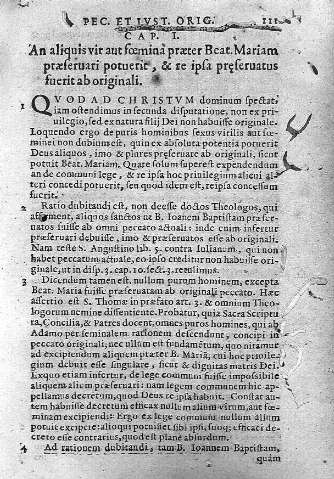 PEC. ET IVST. ORIG. 111
CAP. I.
An aliquis vir aut fœmina præter Beat. Mariam
præseruari potuerit, & re ipsa pręseruatus
fuerit ab originali.
1 QVOD AD CHRISTVM dominum spectat,
iam ostendimus in secunda disputatione, non ex pri
uilegio, sed ex natura filij Dei non habuisse originale.
Loquendo ergo de puris hominibus sexus virilis aut fœ
minei non dubium est, quin ex absoluta potentia potuerit
Deus aliquos, imo & plures pręseruare ab originali, sicut
potuit Beat. Mariam. Quare solum superest expendendum
an de communi lege, & re ipsa hoc priuilegium alicui al
teri concedi potuerit, seu quod idem est, re ipsa concessum
fuerit.
2 Ratio dubitandi est, non deesse doctos Theologos, qui
affirment, aliquos sanctos ut B. Ioanem Baptistam præser-
uatos fuisse ab omni peccato actuali: inde enim infertur
præseruari debuisse, imo & præseruatos esse ab originali.
Nam teste N. Augustino lib. 5. contra Iulianum, qui non
habet peccatum actuale, eo ipso creditur non habuisse ori-
ginale, ut in disp. 3. cap. 10. sect. 3. retulimus.
3 Dicendum tamen est, nullum purum hominem, excepta
Beat. Maria fuisse præseruatum ab originali peccato. Hæc
assertio est S. Thomæ in præfato art. 3. & omnium Theo-
logorum nemine dissentiente. Probatur, quia Sacra Scriptu
ra, Concilia, & Patres docent, omnes puros homines, qui ab
Adamo per seminalem rationem descendunt, concipi in
peccato originali; nec ullum est fundamẽtum, quo nitamur
ad excipiendum aliquem præter B. Mariã, cui hoc priuile-
gium debuit esse singulare, sicut & dignitas matris Dei.
Ex quo etiam infertur, de lege communi fuisse impossibile
aliquem alium præseruari: nam legem communem hic ap-
pellamus decretum, quod Deus re ipsa habuit. Constat au-
tem habuisse decretum efficax nullum alium virum, aut fœ-
minam excipiendi: Ergo ex lege communi nullum alium
potuit excipere: alioqui potuisset sibi ipsi, suoq; efficaci de-
creto esse contrarius, quod est plane absurdum.
4 Ad rationem dubitandi, tam B. Ioannem Baptistam,
quàm